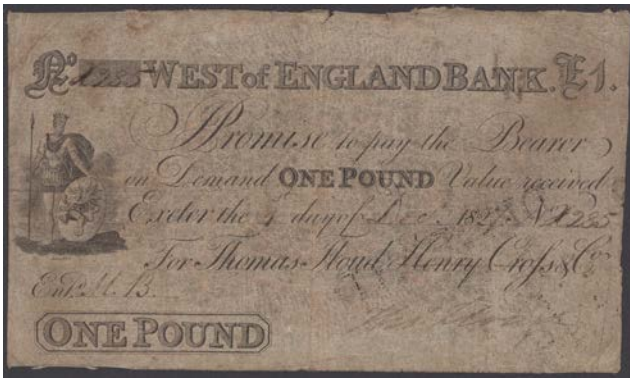 No. X285 WEST of ENGLAND BANK. £1.
I Promise to pay the Bearer
on Demand ONE POUND Value received
Exeter the 4 day of Dec. 182 No X285
For Thomas Floud, Henry Cross & Co.
Entd. M. B.
ONE POUND